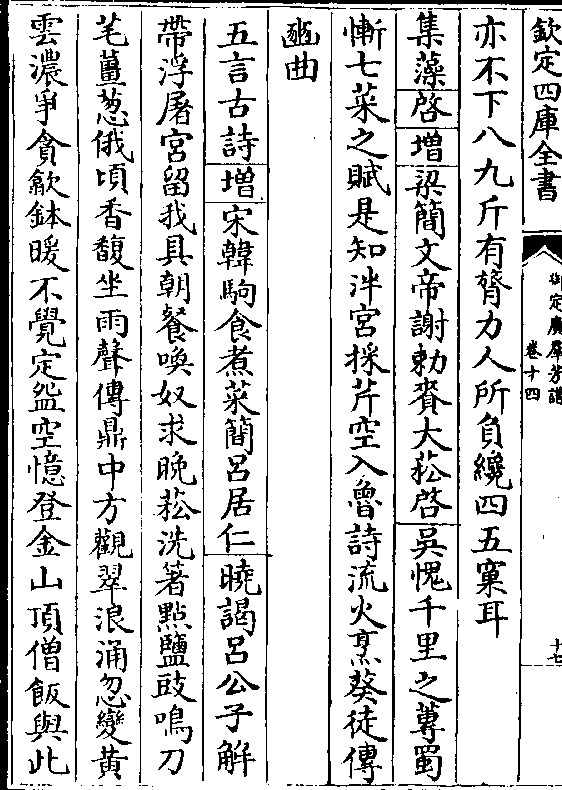 欽定四庫全書
御定廣羣芳譜
卷十四
十七
亦不下八九斤有膂力人所負纔四五窠耳
集藻啓增梁簡文帝謝勅賚大菘啓吳愧千里之蓴蜀
慚七菜之賦是知泮宮採芹空入魯詩流火烹葵徒傳
豳曲
五言古詩增宋韓駒食煮菜簡呂居仁曉謁呂公子解
帶浮屠宮留我具朝餐喚奴求晚菘洗箸點鹽豉鳴刀
芼薑葱俄頃香馥坐雨聲傳鼎中方觀翠浪涌忽變黃
雲濃爭貪歠鉢暖不覺定盌空憶登金山頂僧飯與此